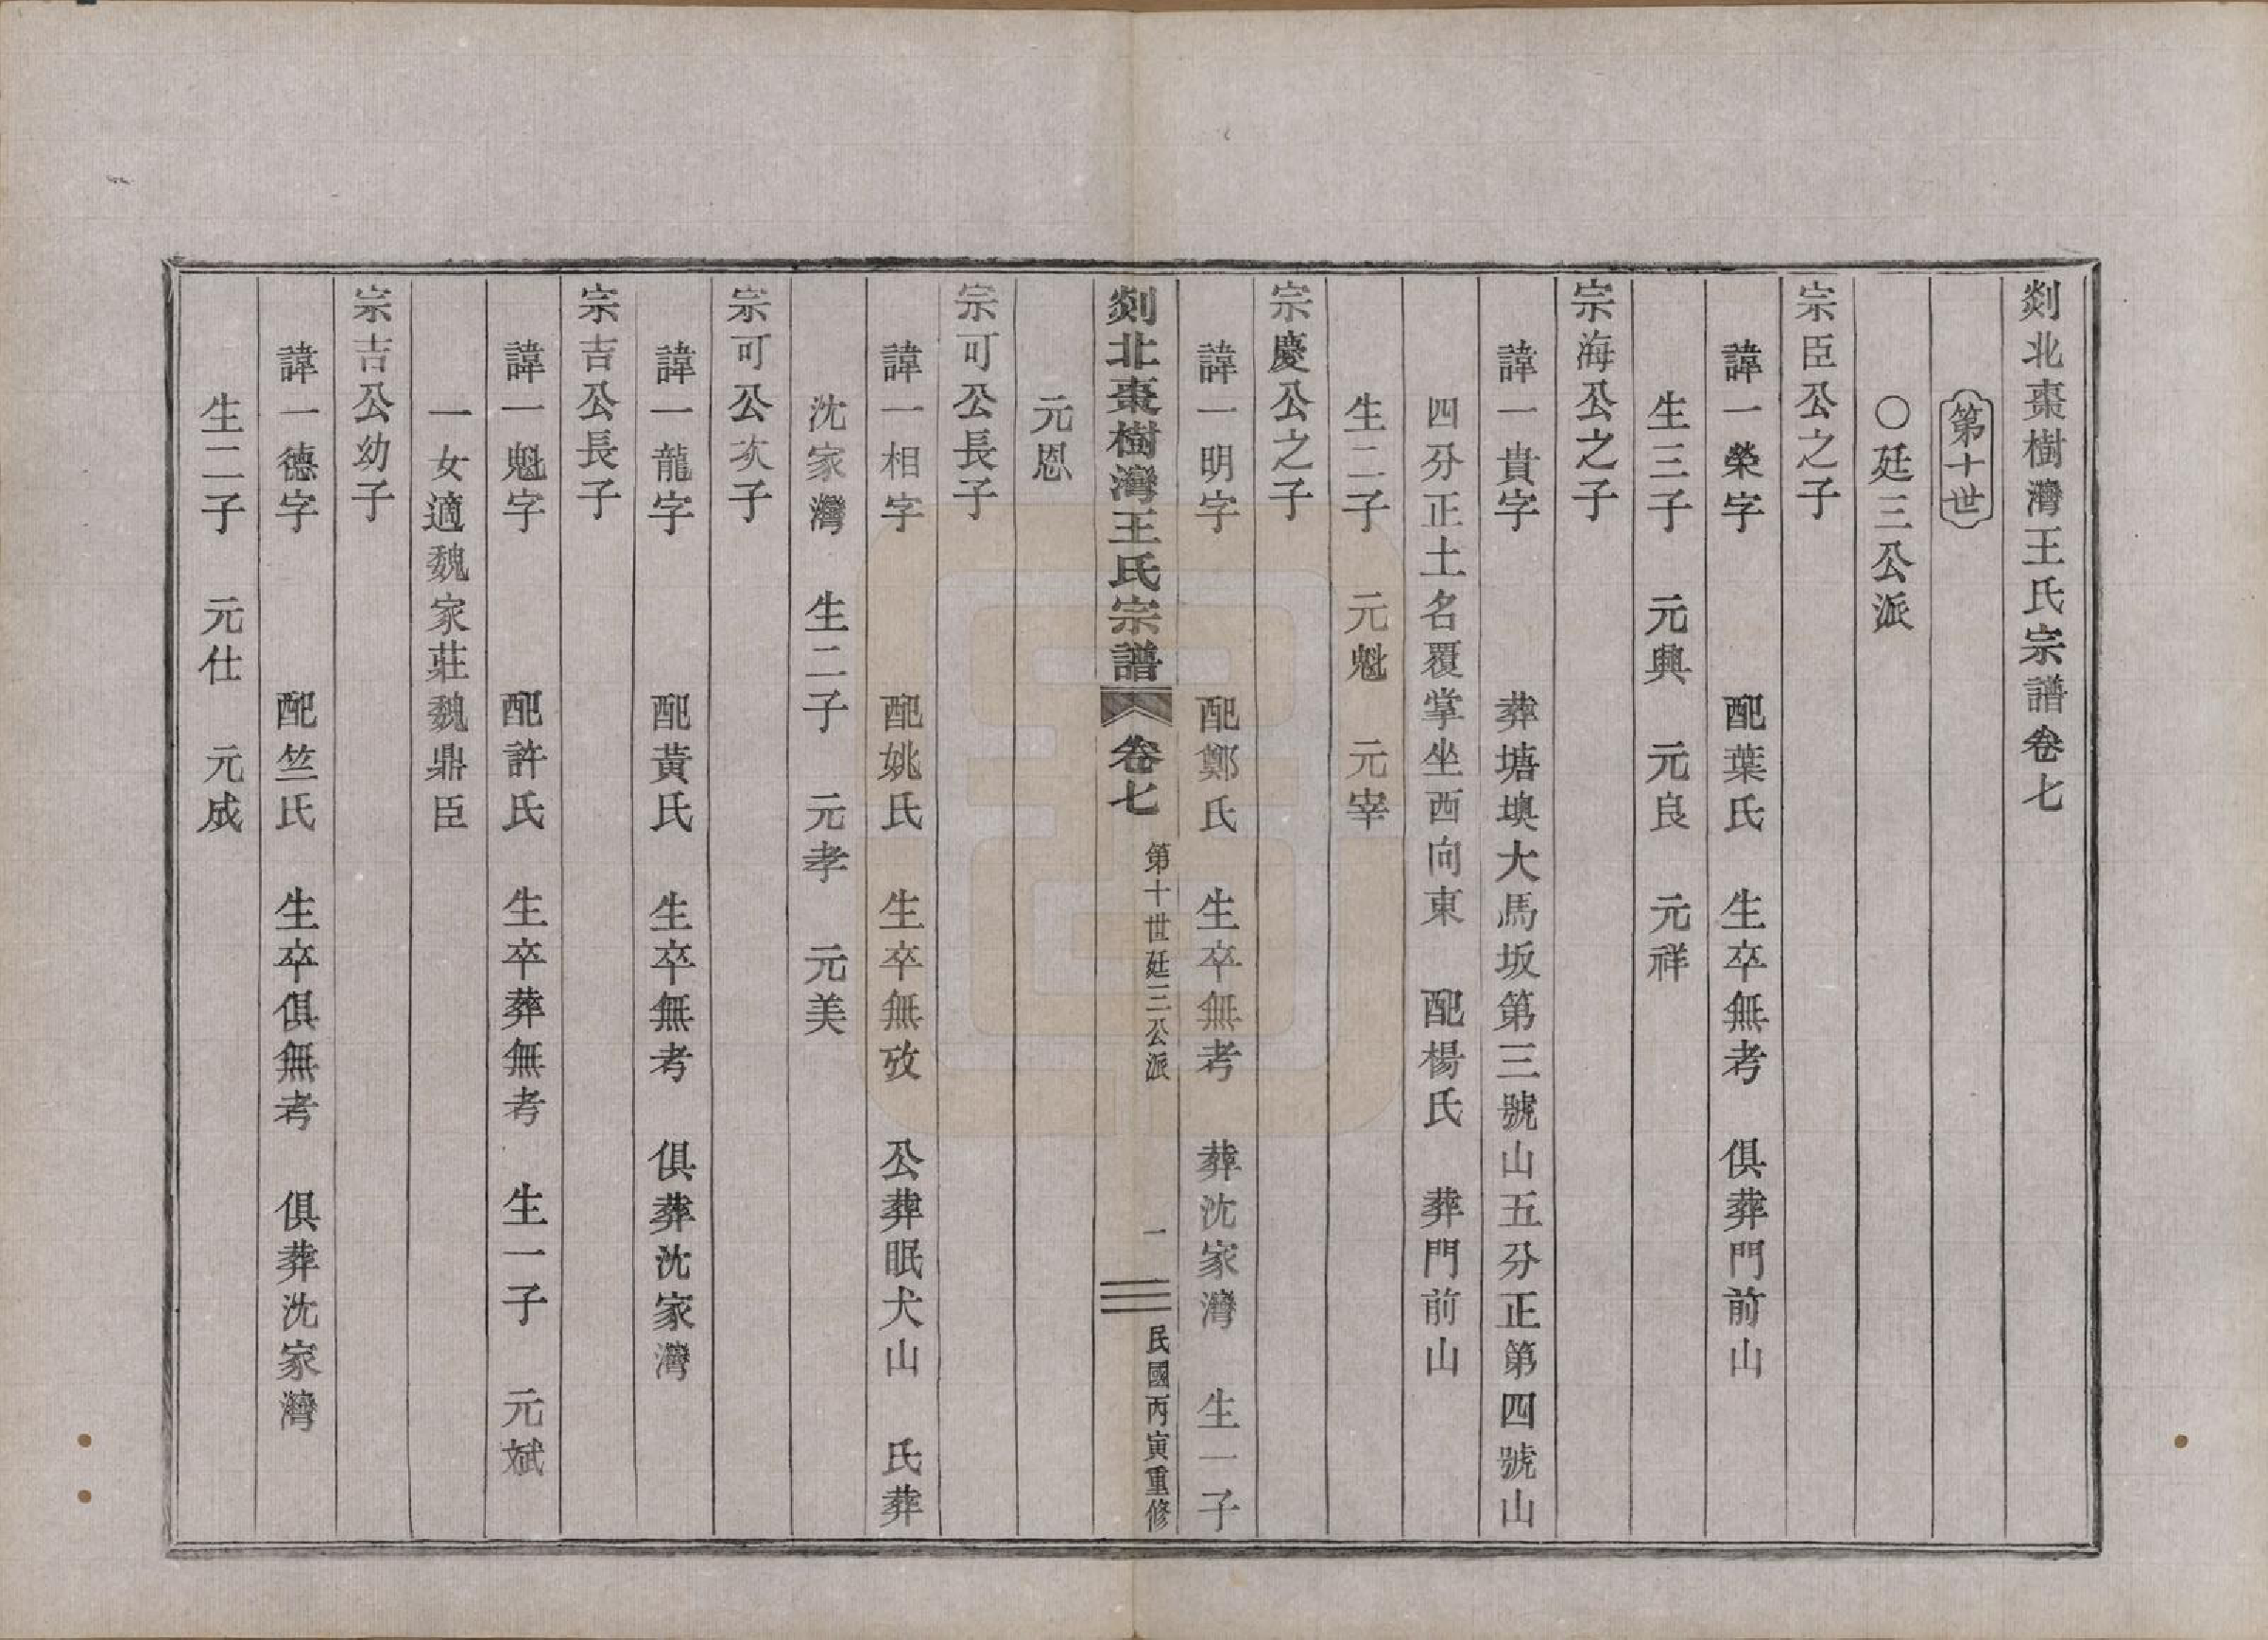 剡北棗樹灣王氏宗譜卷七
第十世
〇廷三公派
宗臣公之子
諱一榮字　配葉氏　生卒無考　俱葬門前山
生三子　元興　元良　元祥
宗海公之子
諱一貴字　葬塘墺大馬坂第三號山五分正第四號山
四分正土名覆掌坐西向東　配楊氏　葬門前山
生二子　元魁　元宰
宗慶公之子
諱一明字　配鄭氏　生卒無考　葬沈家灣　生一子
剡北棗樹灣王氏宗譜　卷七　第十世廷三公派　一　民國丙寅重修
元恩
宗可公長子
諱一相字　配姚氏　生卒無攷　公葬眠犬山　氏葬
沈家灣　生二子　元孝　元美
宗可公次子
諱一龍字　配黃氏　生卒無考　俱葬沈家灣
宗吉公長子
諱一魁字　配許氏　生卒葬無考　生一子　元斌
一女適魏家莊魏鼎臣
宗吉公幼子
諱一德字　配竺氏　生卒俱無考　俱葬沈家灣
生二子　元仕　元成